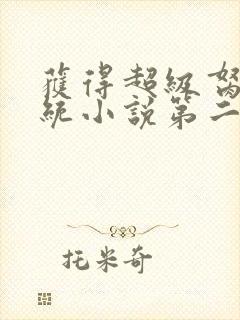 獲得超級
統小說第二
托米奇